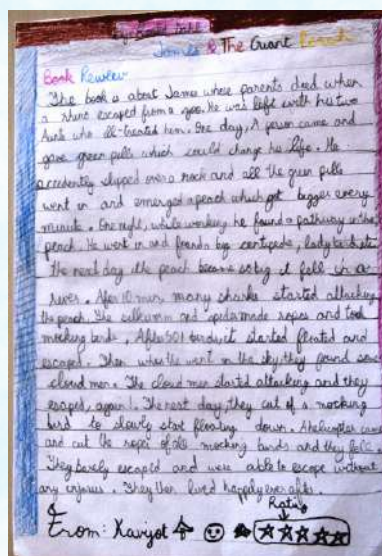 By: Roald Dahl
James & The Giant Peach
Book Review
The book is about James whose parents died when
a rhino escaped from a zoo. He was left with his two
Aunts who ill-treated him. One day, A person came and
gave green pills which could change his life. He
accidently slipped over a rock and all the green pills
went in and emerged a peach which got bigger every
minute. One night, while working he found a pathway in the
peach. He went in and found a big centipede, lady bird etc
the next day the peach became so big it fell in a
river. After 10 min, many sharks started attacking
the peach. The silkworm and spider made ropes and took
mocking birds. After 501 birds it started floated and
escaped. Then when the went in the sky, they found some
cloud men. The cloud men started attacking and they
escaped, again!. The next day, they cut of a mocking
bird to slowly start floating down. A helicopter came
and cut the ropes of all mocking birds and they fell
They barely escaped and were able to escape without
any injuries. They then lived happily ever after.
Rating
From: Kavijot